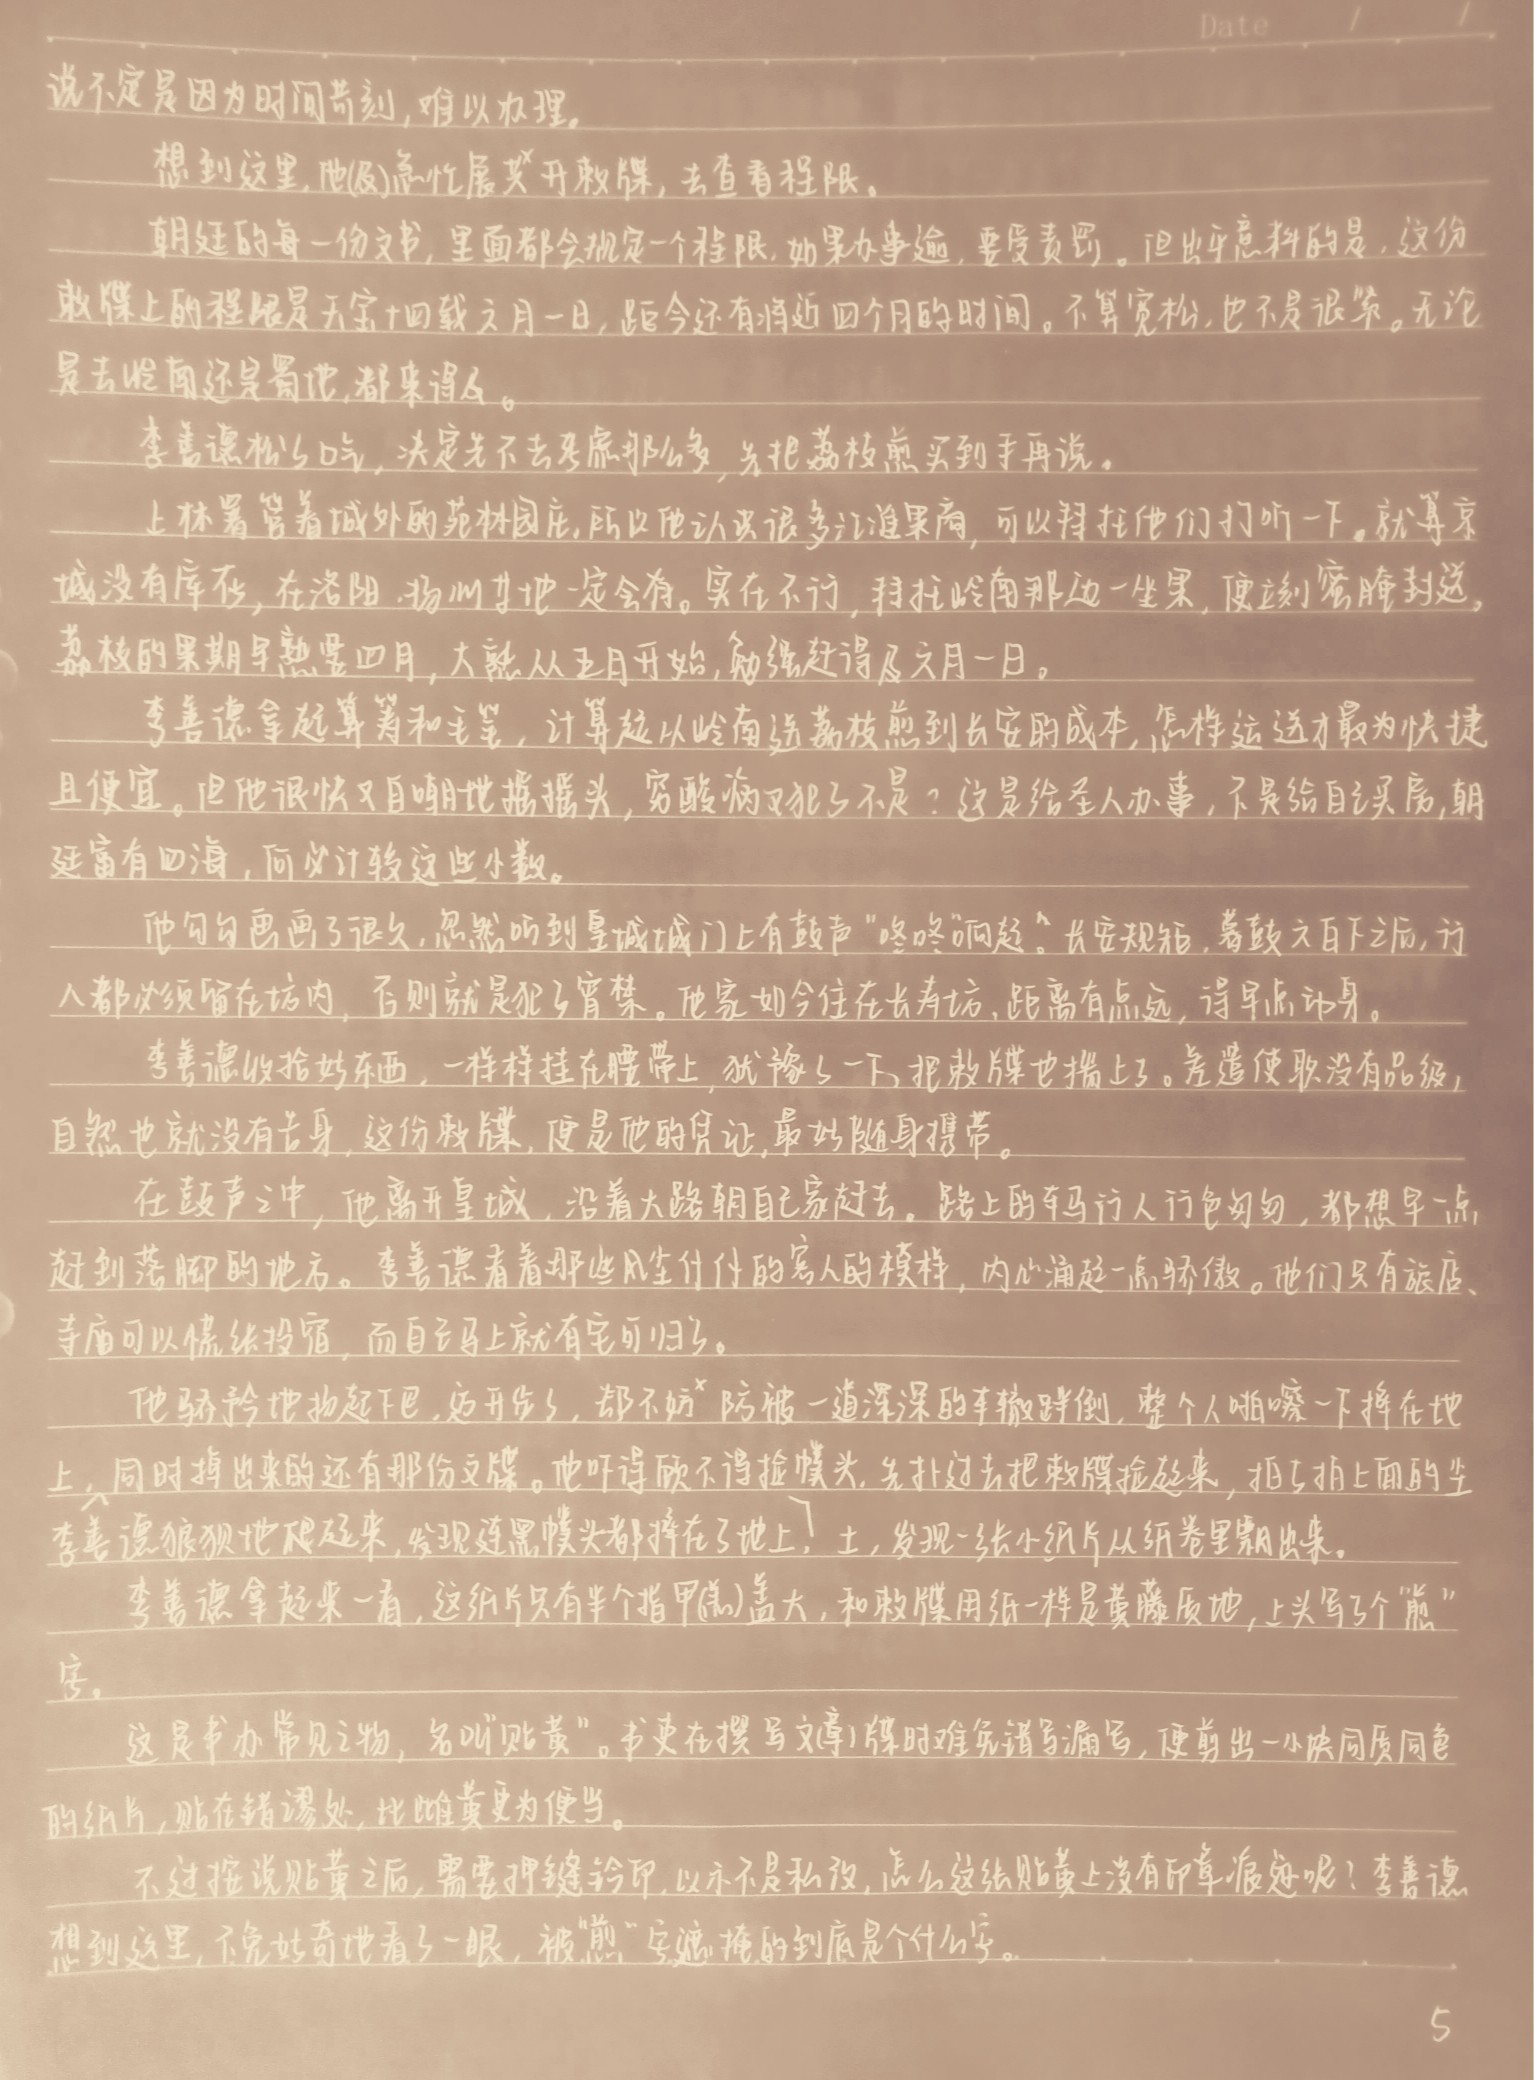 Date / /
说不定是因为时间苛刻,难以办理。
想到这里,他(及)急忙展开敕牒,去查看程限。
朝廷的每一份文书,里面都会规定一个程限,如果办事逾,要受责罚。但出乎意料的是,这份
敕牒上的程限是天宝十四载六月一日,距今还有将近四个月的时间。不算宽松,也不是很紧。无论
是去岭南还是蜀地,都来得及。
李善德松了口气,决定先不去考虑那么多,先把荔枝煎买到手再说。
上林署管着城外的苑林园庄,所以他认识很多江淮果商,可以拜托他们打听一下。就算京
城没有库存,在洛阳、扬州等地一定会有。实在不行,拜托岭南那边一坐果,便立刻蜜腌封送。
荔枝的果期早熟是四月,大熟从五月开始,勉强赶得及六月一日。
李善德拿起算筹和毛笔,计算起从岭南送荔枝煎到长安的成本,怎样运送才最为快捷
且便宜。但他很快又自嘲地摇摇头,穷酸病又犯了不是?这是给圣人办事,不是给自己买房,朝
廷富有四海,何必计较这些小数。
他勾勾画画了很久,忽然听到皇城城门上有鼓声“咚咚”响起。长安规矩,暮鼓六百下之后,行
人都必须留在坊内,否则就是犯了宵禁。他家如今住在长寿坊,距离有点远,得早点动身。
李善德收拾好东西,一样样挂在腰带上,犹豫了一下,把敕牒也揣上了。差遣使职没有品级,
自然也就没有告身,这份敕牒,便是他的凭证,最好随身携带。
在鼓声之中,他离开皇城,沿着大路朝自己家赶去。路上的车马行人行色匆匆,都想早一点
赶到落脚的地方。李善德看着那些风尘仆仆的客人的模样,内心涌起一点骄傲。他们只有旅店、
寺庙可以慌张投宿,而自己马上就有宅可归了。
他骄矜地扬起下巴,迈开步子,却不妨防被一道深深的车辙绊倒,整个人啪嚓一下摔在地
上,同时掉出来的还有那份文牒。他吓得顾不得捡幞头,先扑过去把敕牒捡起来,拍去拍上面的尘
李善德狼狈地爬起来,发现连黑幞头都摔在了地上, 土,发现一张小纸片从纸卷里飘出来。
李善德拿起来一看,这纸片只有半个指甲(盖)盖大,和敕牒用纸一样是黄藤质地,上头写了个“煎”
字。
这是书办常见之物,名叫“贴黄”。书吏在撰写文(章)牒时难免错写漏写,便剪出一小块同质同色
的纸片,贴在错谬处,比雌黄更为便当。
不过按说贴黄之后,需要押缝钤印,以示不是私改,怎么这张贴黄上没有印章痕迹呢?李善德
想到这里,不免好奇地看了一眼,被“煎”字遮掩的到底是个什么字。
5